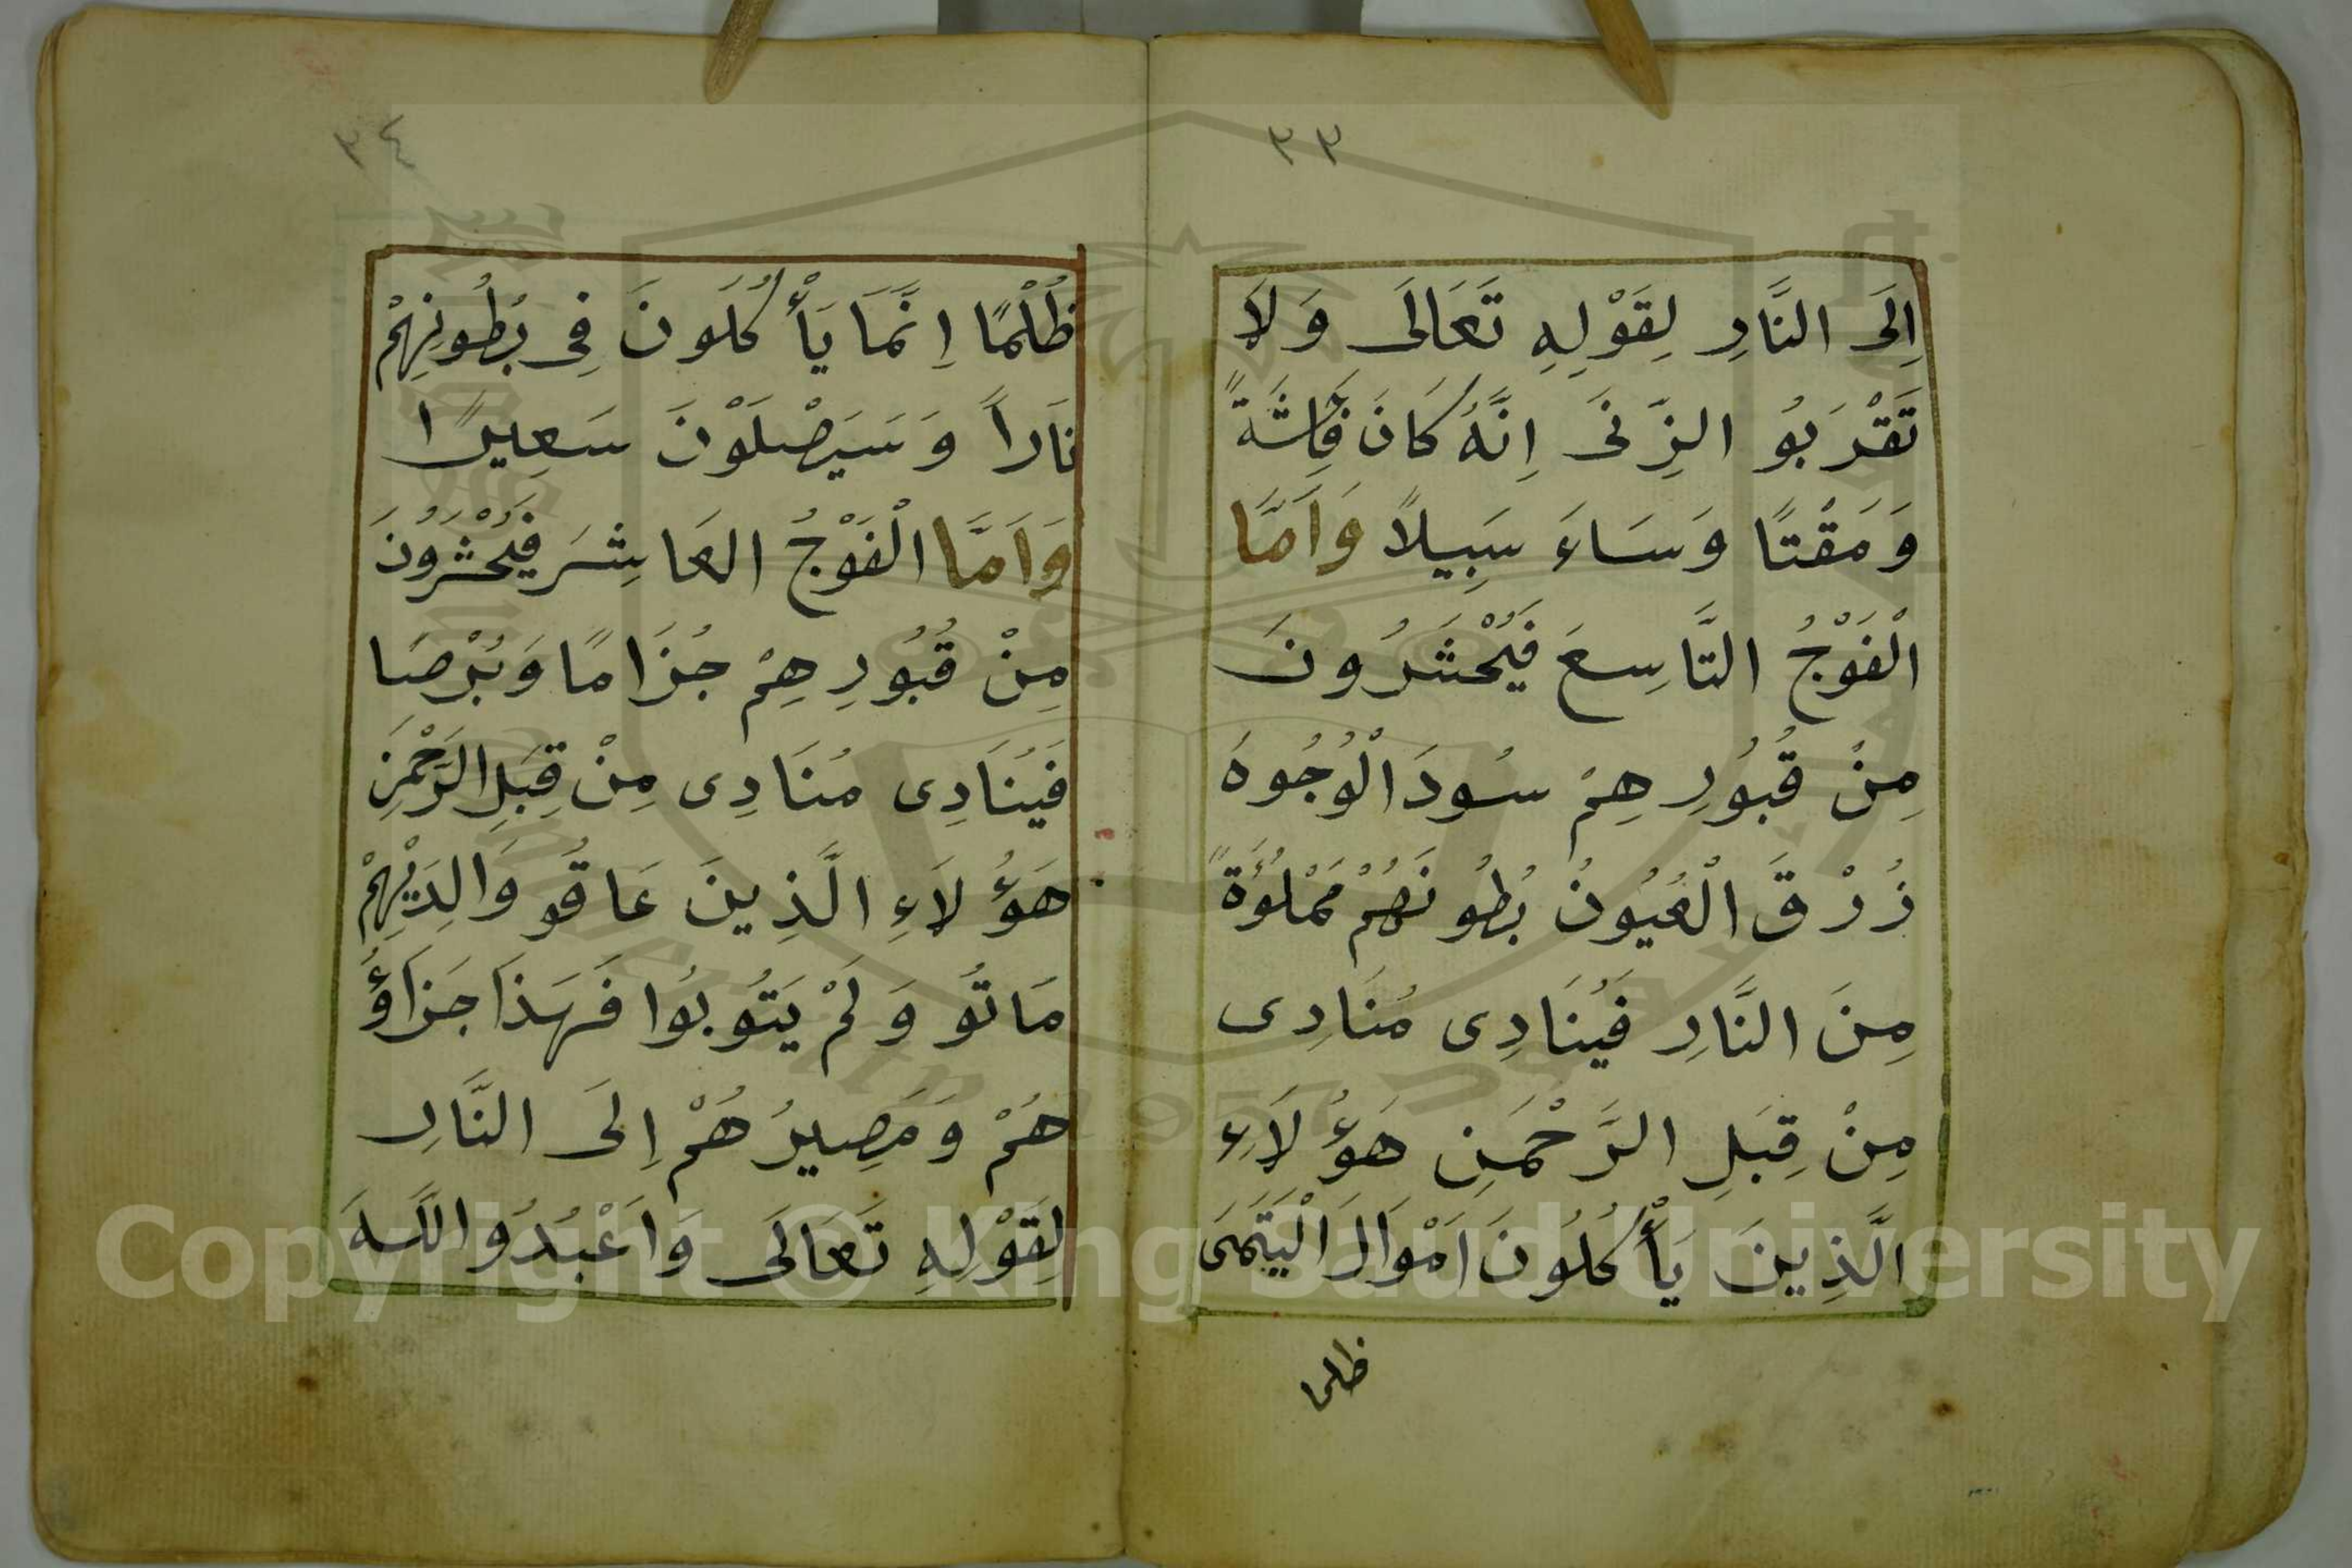 ٣٣
اِلَى النَّارِ لِقَوْلِهِ تَعَالَى وَلَا
تَقْرَبُو الزِّنَى اِنَّهُ كَانَ فَاحِشَةً
وَمَقْتًا وَسَاءَ سَبِيلاً وَاَمَّا
الْفَوْجُ التَّاسِعَ فَيُحْشَرُونَ
مِنْ قُبُورِهِمْ سُودَ الْوُجُوهَ
زُرْقَ الْعُيُونُ بُطُونَهُمْ مَمْلُوَةً
مِنَ النَّارِ فَيُنَادِى مُنَادِى
مِنْ قِبَلِ الرَّحْمَنِ هَؤُلَاءِ
الَّذِينَ يَأْكُلُونَ اَمْوَالَ الْيَتَمَى
ظلما
٣٤
ظُلْمًا اِنَّمَا يَأْكُلَونَ فِى بُطُونِهِمْ
نَاراً وَسَيَصْلَوْنَ سَعِيرًا
وَاَمَّا الْفَوْجُ العَاشِرَ فَيُحْشَرُونَ
مِنْ قُبُورِهِمْ جُزَامًا وَبُرْصًا
فَيُنَادِى مُنَادِى مِنْ قِبَلِ الرَّحْمَنِ
هَؤُلَاءِ الَّذِينَ عَاقُو وَالِدَيْهِمْ
مَاتُو وَلَمْ يَتُوبُوا فَهَذَا جَزَاؤُ
هُمْ وَمَصِيرُهُمْ اِلَى النَّارِ
لِقَوْلِهِ تَعَالَى وَاَعْبُدُوا اللَّهَ
Copyright © King Saud University
1957